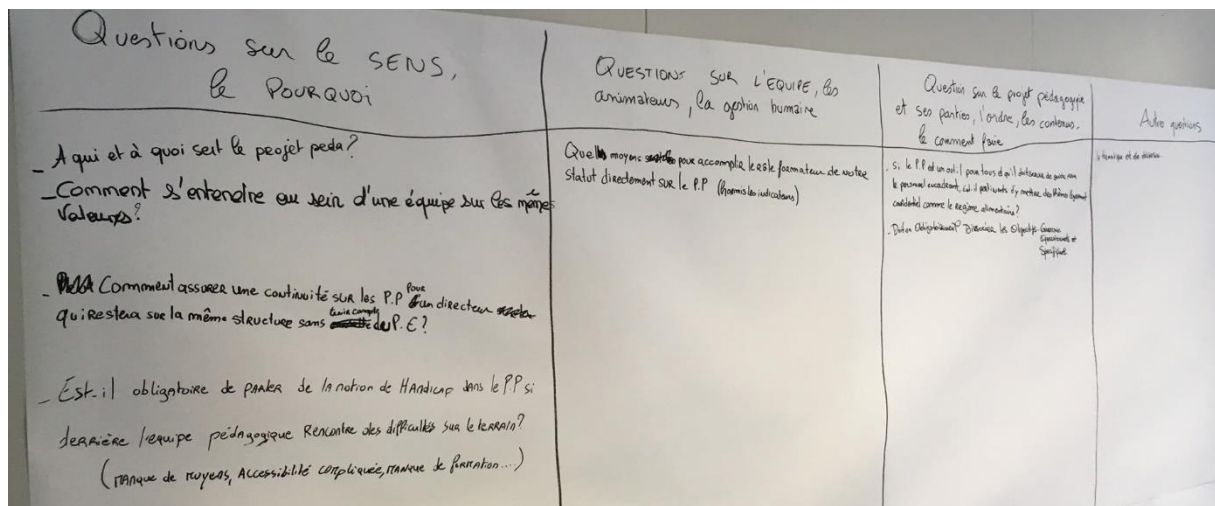 Questions sur le SENS,
le POURQUOI
_ A qui et à quoi sert le projet peda?
_ Comment s'entendre au sein d'une équipe sur les mêmes
valeurs?
_ Comment assurer une continuité sur les P.P pour un directeur
qui restera sur la même structure sans tenir compte du P.E?
_ Est-il obligatoire de parler de la notion de Handicap dans le PP si
derrière l'equipe pédagogique Rencontre des difficultés sur le terrain?
(manque de moyens, Accessibilité compliquée, manque de formation...)
QUESTIONS SUR L'EQUIPE, les
animateurs, la gestion humaine
Quels moyens pour accomplir le rôle formateur de notre
statut directement sur le P.P (hormis les indicateurs)
Question sur le projet pédagogique
et ses parties, l'ordre, les contenus,
le comment faire
. Si le P.P est un outil pour tous
le personnel encadrant, est-il pertinents d'y mettre des thèmes
confidentiel comme le Régime alimentaire?
. Doit-on Obligatoirement Dissocier les Objectifs Généraux
Opérationnels et
Spécifiques
Autres questions